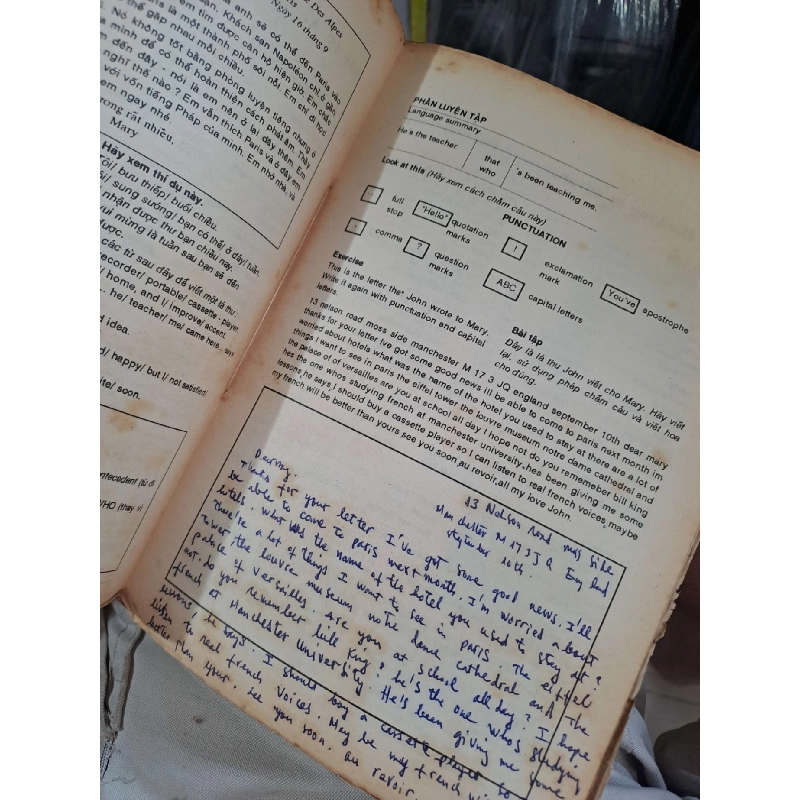 Des Alpes
Ngày 16 tháng 9
anh sẽ có thể đến Paris vào
Khách sạn Napoléon chỉ ở gần
em tìm được căn hộ hiện giờ. Em chắc
là một thành phố sôi nổi. Em chỉ đi học
thể gặp nhau mỗi chiều.
Nó không tốt bằng phòng luyện tiếng nhưng ở
mình để có thể hoàn thiện cách phát âm. Thầy
đến đây - nói là em nên ở lại đây thêm. Em
nghĩ thế nào? Em vẫn thích Paris và ở đây em
với vốn tiếng Pháp của mình. Em nhớ nhà, và
em ngay nhé.
rất nhiều,
Mary
Hãy xem thí dụ này.
tôi/ bưu thiếp/ buổi chiều.
sung sướng/ bạn có thể/ ở đây/ tuần.
nhận được thư bạn chiều nay.
vui mừng là tuần sau bạn sẽ đến
được.
các từ sau đây để viết một lá thư:
recorder/ portable/ cassette - player
home, and I/ improve/ accent.
... he/ teacher/ me/ came here - says
idea.
happy/ but I/ not satisfied/
soon.
antecedent (từ đi
WHO (thay vì
PHẦN LUYỆN TẬP
Language summary
He's the teacher that who 's been teaching me.
Look at this (Hãy xem cách chấm câu này)
PUNCTUATION
. full stop "Hello" quotation marks ! exclamation mark You've apostrophe
, comma ? question marks ABC capital letters
Exercise
This is the letter that John wrote to Mary.
Write it again with punctuation and capital
letters.
Bài tập
Đây là lá thư John viết cho Mary. Hãy viết
lại, sử dụng phép chấm câu và viết hoa
cho đúng.
13 nelson road moss side manchester M 17 3 JQ england september 10th dear mary
thanks for your letter I've got some good news will be able to come to paris next month im
worried about hotels what was the name of the hotel you used to stay at there are a lot of
things I want to see in paris the eiffel tower the louvre museum notre dame cathedral and
the palace of of versailles are you at school all day I hope not do you remember bill king
hes the one whos studying french at manchester university hes been giving me some
lessons, he says I should buy a cassette player so I can listen to real french voices, maybe
my french will be better than yours see you soon, au revoir, all my love John.
13 Nelson road moss side
Manchester M 17 3 J Q England
september 10th.
Thanks for your letter. I've got some good news. I'll
be able to come to paris next month. I'm worried about
hotels. What was the name of the hotel you used to stay at?
There're a lot of things I want to see in paris. The eiffel
tower the louvre museum notre dame cathedral and the
palace of versailles. Are you at school all day? I hope
not. Do you remember bill King? he's the one who's studying
french at Manchester University. He's been giving me some
lessons, he says. I should buy a cassete player to
listen to real french voices. May be my french
better than your. see you soon. au revoir.